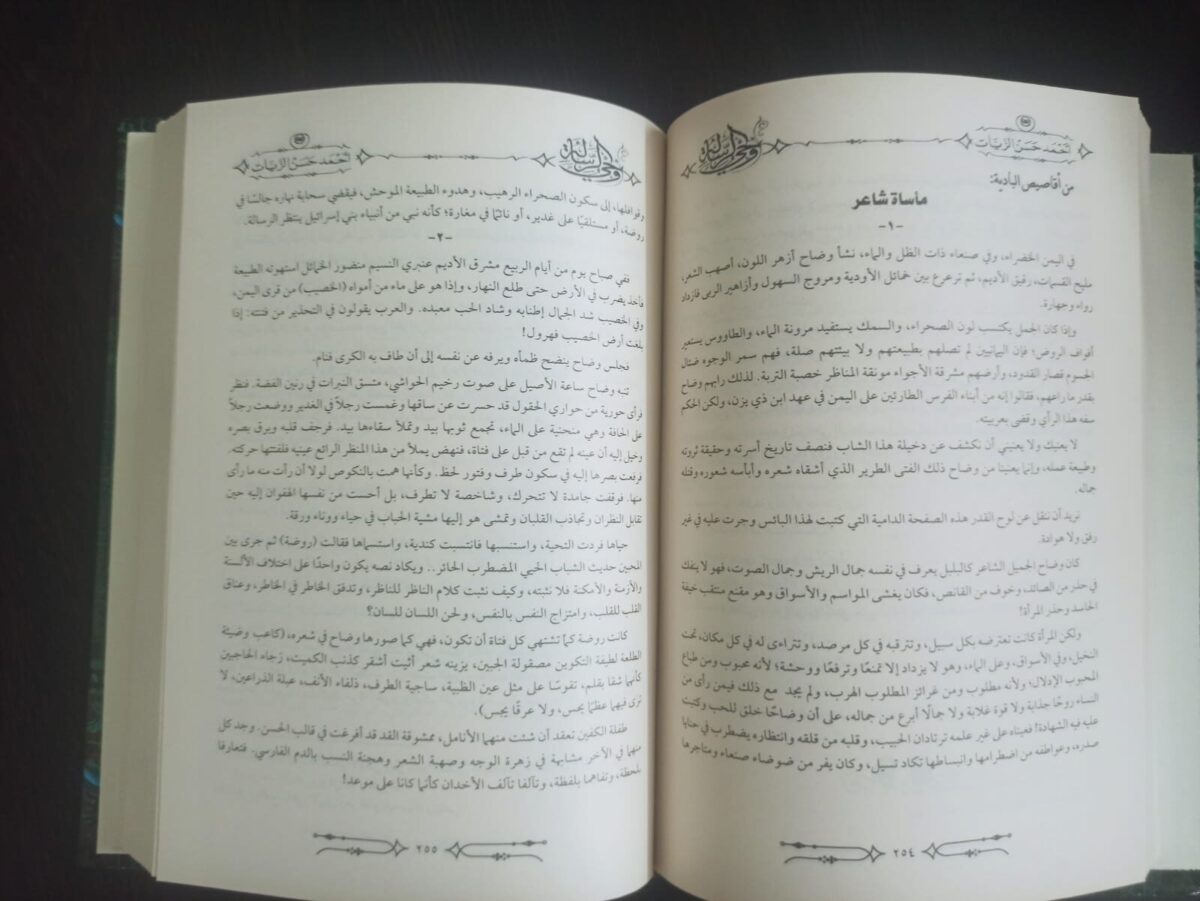 وحي الرسالة
أحمد حسن الزيات
من أقاصيص البادية:
مأساة شاعر
-١-
في اليمن الخضراء، وفي صنعاء ذات الظل والماء، نشأ وضاح أزهر اللون، أصهب الشعر،
مليح القسمات، رقيق الأديم، ثم ترعرع بين خمائل الأودية ومروج السهول وأزاهير الربى فازداد
رواء وجهارة.
وإذا كان الجمل يكتسب لون الصحراء، والسمك يستفيد مرونة الماء، والطاووس يستعير
أفواف الروض؛ فإن اليمانيين لم تصلهم بطبيعتهم ولا بيئتهم صلة، فهم سمر الوجوه ضئال
الجسوم قصار القدود، وأرضهم مشرقة الأجواء مونقة المناظر خصبة التربة. لذلك رابهم وضاح
بقدر ما راعهم، فقالوا إنه من أبناء الفرس الطارئين على اليمن في عهد ابن ذي يزن، ولكن الحكم
سفه هذا الرأي وقضى بعربيته.
لا يعنيك ولا يعنيني أن نكشف عن دخيلة هذا الشاب فنصف تاريخ أسرته وحقيقة ثروته
وطبيعة عمله، وإنما يعنينا من وضاح ذلك الفتى الطرير الذي أشقاه شعره وأبأسه شعوره وقتله
جماله.
نريد أن ننقل عن لوح القدر هذه الصفحة الدامية التي كتبت لهذا البائس وجرت عليه في غير
رفق ولا هوادة.
كان وضاح الجميل الشاعر كالبلبل يعرف في نفسه جمال الريش وجمال الصوت، فهو لا ينفك
في حذر من الصائد، وخوف من القانص، فكان يغشى المواسم والأسواق وهو مقنع متنقب خيفة
الحاسد وحذر المرأة!
ولكن المرأة كانت تعترضه بكل سبيل، وتترقبه في كل مرصد، وتتراءى له في كل مكان، تحت
النخيل، وفي الأسواق، وعلى الماء، وهو لا يزداد إلا تمنعًا وترفعًا ووحشة؛ لأنه محبوب ومن طباع
المحبوب الإدلال؛ ولأنه مطلوب ومن غرائز المطلوب الهرب، ولم يجد مع ذلك فيمن رأى من
النساء روحًا جذابة ولا قوة غلابة ولا جمالًا أبرع من جماله، على أن وضاحًا خلق للحب وكتبت
عليه فيه الشهادة! فعيناه على غير علمه ترتادان الحبيب، وقلبه من قلقه وانتظاره يضطرب في حنايا
صدره، وعواطفه من اضطرامها وانبساطها تكاد تسيل، وكان يفر من ضوضاء صنعاء ومتاجرها
٢٥٤
وحي الرسالة
أحمد حسن الزيات
وقوافلها، إلى سكون الصحراء الرهيب، وهدوء الطبيعة الموحش، فيقضي سحابة نهاره جالسًا في
روضة، أو مستلقيًا على غدير، أو نائمًا في مغارة؛ كأنه نبي من أنبياء بني إسرائيل ينتظر الرسالة.
-٢-
ففي صباح يوم من أيام الربيع مشرق الأديم عنبري النسيم منضور الخمائل استهوته الطبيعة
فأخذ يضرب في الأرض حتى طلع النهار، وإذا هو على ماء من أمواه (الخصيب) من قرى اليمن،
وفي الخصيب شد الجمال إطنابه وشاد الحب معبده. والعرب يقولون في التحذير من فتنته: إذا
بلغت أرض الخصيب فهرول!
فجلس وضاح ينضح ظمأه ويرفه عن نفسه إلى أن طاف به الكرى فنام.
تنبه وضاح ساعة الأصيل على صوت رخيم الحواشي، متسق النبرات في رنين الفضة. فنظر
فرأى حورية من حواري الحقول قد حسرت عن ساقها وغمست رجلاً في الغدير ووضعت رجلاً
على الحافة وهي منحنية على الماء، تجمع ثوبها بيد وتملأ سقاءها بيد. فرجف قلبه وبرق بصره
وخيل إليه أن عينه لم تقع من قبل على فتاة، فنهض يملأ من هذا المنظر الرائع عينيه فلفتتها حركته.
فرفعت بصرها إليه في سكون طرف وفتور لحظ. وكأنها همت بالنكوص لولا أن رأت منه ما رأى
منها. فوقفت جامدة لا تتحرك، وشاخصة لا تطرف، بل أحست من نفسها الهفوان إليه حين
تقابل النظران وتجاذب القلبان وتمشى هو إليها مشية الحباب في حياء ووناء ورقة.
حياها فردت التحية، واستنسبها فانتسبت كندية، واستسماها فقالت (روضة) ثم جرى بين
المحبين حديث الشباب الحيي المضطرب الحائر.. ويكاد نصه يكون واحدًا على اختلاف الألسنة
والأزمنة والأمكنة فلا نثبته، وكيف نثبت كلام الناظر للناظر، وتدفق الخاطر في الخاطر، وعناق
القلب للقلب، وامتزاج النفس بالنفس، ولحن اللسان للسان؟
كانت روضة كما تشتهي كل فتاة أن تكون، فهي كما صورها وضاح في شعره، (كاعب وضيئة
الطلعة لطيفة التكوين مصقولة الجبين، يزينه شعر أثيث أشقر كذنب الكميت، زجاء الحاجبين
كأنهما شقا بقلم، تقوسا على مثل عين الظبية، ساجية الطرف، ذلفاء الأنف، عبلة الذراعين، لا
ترى فيهما عظمًا يحس، ولا عرقًا يجس).
طفلة الكفين تعقد أن شئت منهما الأنامل، ممشوقة القد قد أفرغت في قالب الحسن. وجد كل
منهما في الآخر مشابهة في زهرة الوجه وصهبة الشعر وهجنة النسب بالدم الفارسي. فتعارفا
بلحظة، وتفاهما بلفظة، وتآلفا تآلف الأخدان كأنما كانا على موعد!
٢٥٥